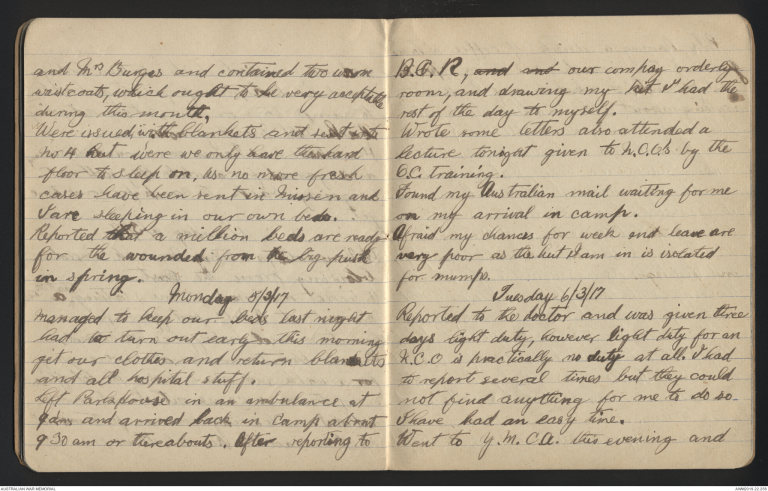 and Mrs Burges and contained two warm
waistcoats, which ought to be very acceptable
during this month.
Were issued with blankets and sent into
No 4 hut were we only have the hard
floor to sleep on, as no more fresh
cases have been sent in Nissen and
I are sleeping in our own beds.
Reported that a million beds are ready
for the wounded from the big push
in spring.
Monday 5/3/17
Managed to keep our beds last night
had to turn out early this morning
get our clothes and return blankets
and all hospital stuff.
Left Parkhouse in an ambulance at
9am and arrived back in camp about
9 30 am or thereabouts. After reporting to
B.O.R, and and our compay orderly
room, and drawing my kit I had the
rest of the day to myself.
Wrote some letters also attended a
lecture tonight given to N.C.O's by the
O.C. training.
Found my Australian mail waiting for me
on my arrival in camp.
Afraid my chances for week end leave are
very poor as the hut I am in is isolated
for mumps.
Tuesday 6/3/17
Reported to the doctor and was given three
days light duty, however light duty for an
N.C.O is practically no duty at all. I had
to report several times but they could
not find anything for me to do so
I have had an easy time.
Went to Y.M.C.A. this evening and
AUSTRALIAN WAR MEMORIAL